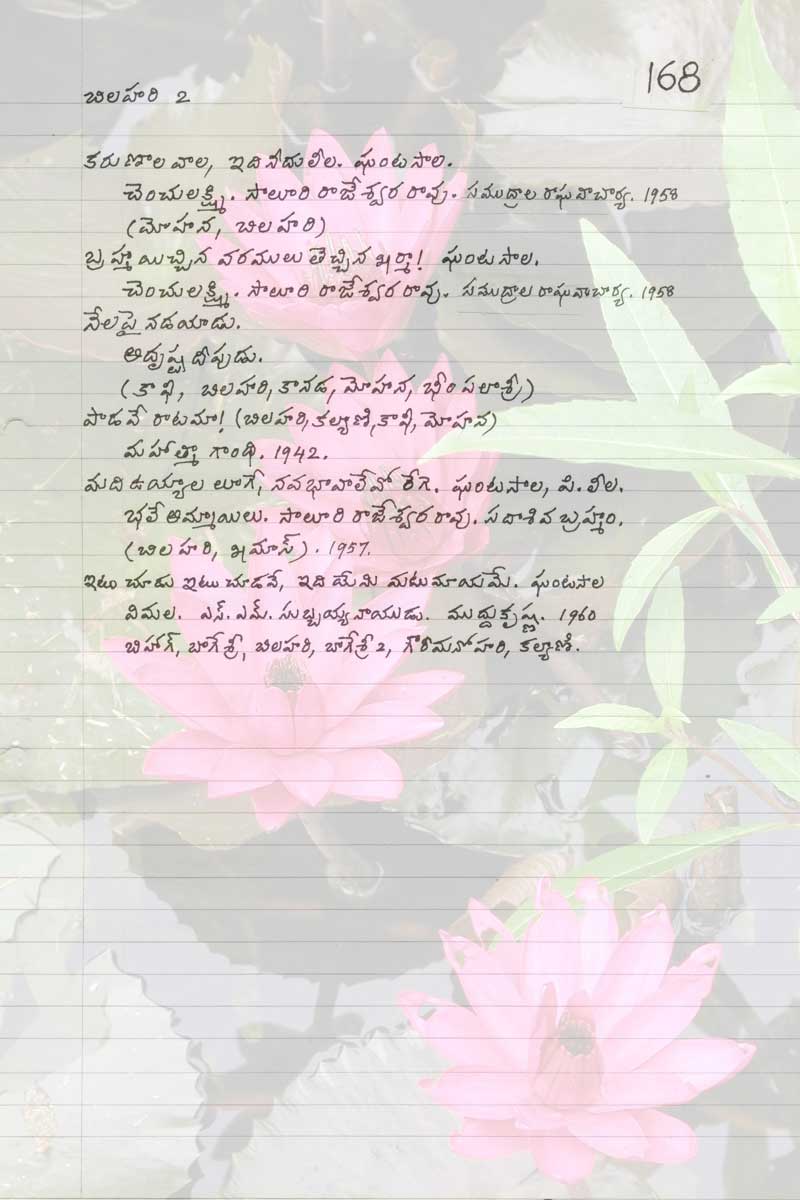 168
బిలహరి 2
కరుణాలవాల, ఇది నీదు లీల. ఘంటసాల.
చెంచులక్ష్మి. సాలూరి రాజేశ్వర రావు. సముద్రాల రాఘవాచార్య. 1958
(మోహన, బిలహరి)
బ్రహ్మ యిచ్చిన వరములు తెచ్చిన ఖర్మా! ఘంటసాల.
చెంచులక్ష్మి. సాలూరి రాజేశ్వర రావు. సముద్రాల రాఘవాచార్య. 1958
నేలపై నడయాడు.
అదృష్ట దీపుడు.
(కాఫి, బిలహరి, కానడ, మోహన, భీంపలాశ్రీ)
పాడవే రాటమా! (బిలహరి, కల్యాణి, కాఫి, మోహన)
మహాత్మా గాంధి. 1942.
మది ఉయ్యాల లూగే, నవభావాలేవో రేగె. ఘంటసాల, పి. లీల.
భలే అమ్మాయిలు. సాలూరి రాజేశ్వర రావు. సదాశివ బ్రహ్మం.
(బిలహరి, ఖమాస్). 1957.
ఇటు చూడు ఇటు చూడవే, ఇది యేమి మటుమాయమే. ఘంటసాల
విమల. ఎస్. ఎమ్. సుబ్బయ్య నాయుడు. ముద్దుకృష్ణ. 1960
బిహాగ్, బాగేశ్రీ, బిలహరి, బాగేశ్రీ 2, గౌరీమనోహరి, కల్యాణి.